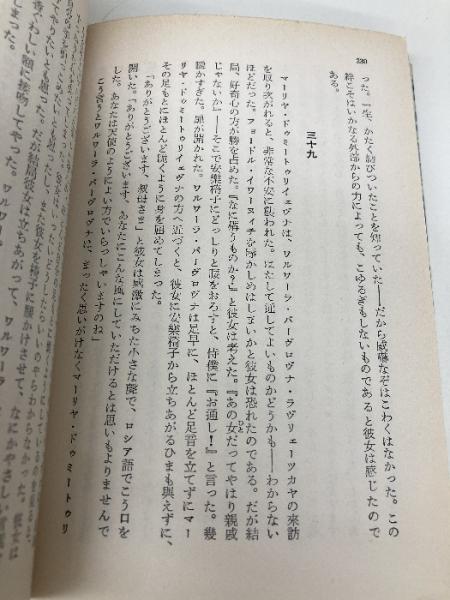 230
った。一生、かたく結びついたことを知っていた――だから威嚇なぞはこわくはなかった。この
絆こそはいかなる外部からの力によっても、こゆるぎもしないものであると彼女は感じたので
ある。
三十九
マーリヤ・ドゥミートゥリイェヴナは、ワルワーラ・パーヴロヴナ・ラヴリェーツカヤの来訪
を取り次がれると、非常な不安に襲われた。はたして通してよいものかどうかも――わからない
ほどだった。フョードル・イワーヌイチを辱かしめはしまいかと彼女は恐れたのである。だが結
局、好奇心の方が勝を占めた。『なに構うものか?』と彼女は考えた。『あの女だってやはり親戚
ひと
じゃないか』――そこで安楽椅子にどっしりと腰をおろすと、侍僕に『お通し!』と言った。幾
瞬かすぎた。扉が開かれた。ワルワーラ・パーヴロヴナは足早に、ほとんど足音を立てずにマー
リヤ・ドゥミートゥリイェヴナの方へ近づくと、彼女に安楽椅子から立ちあがるひまも与えずに、
その足もとにほとんど跪くように身を屈めてしまった。
「ありがとうございます、叔母さま」と彼女は感激にみちた小さな声で、ロシア語でこう口を
開いた。「ありがとうございます。あなたにこんな風にしていただけるとは思いもよりませんで
した。あなたは天使のようによい方でいらっしゃいますのね」
こう言うとワルワーラ・パーヴロヴナは、まったく思いがけなくマーリヤ・ドゥミートゥリ